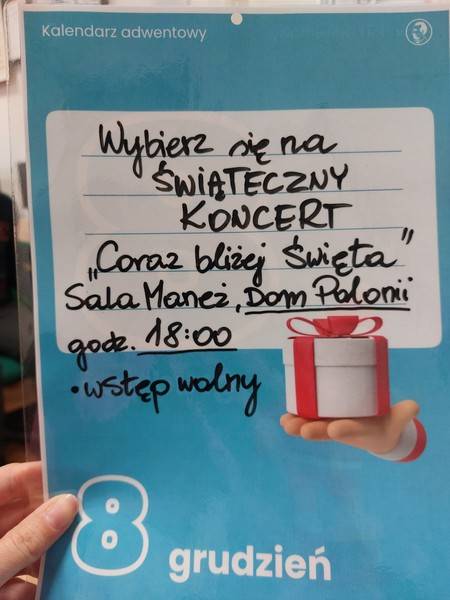 Kalendarz adwentowy
Wybierz się na
ŚWIĄTECZNY
KONCERT
„Coraz bliżej Święta”
Sala Maneż, Dom Polonii
godz. 18:00
• wstęp wolny
8 grudzień